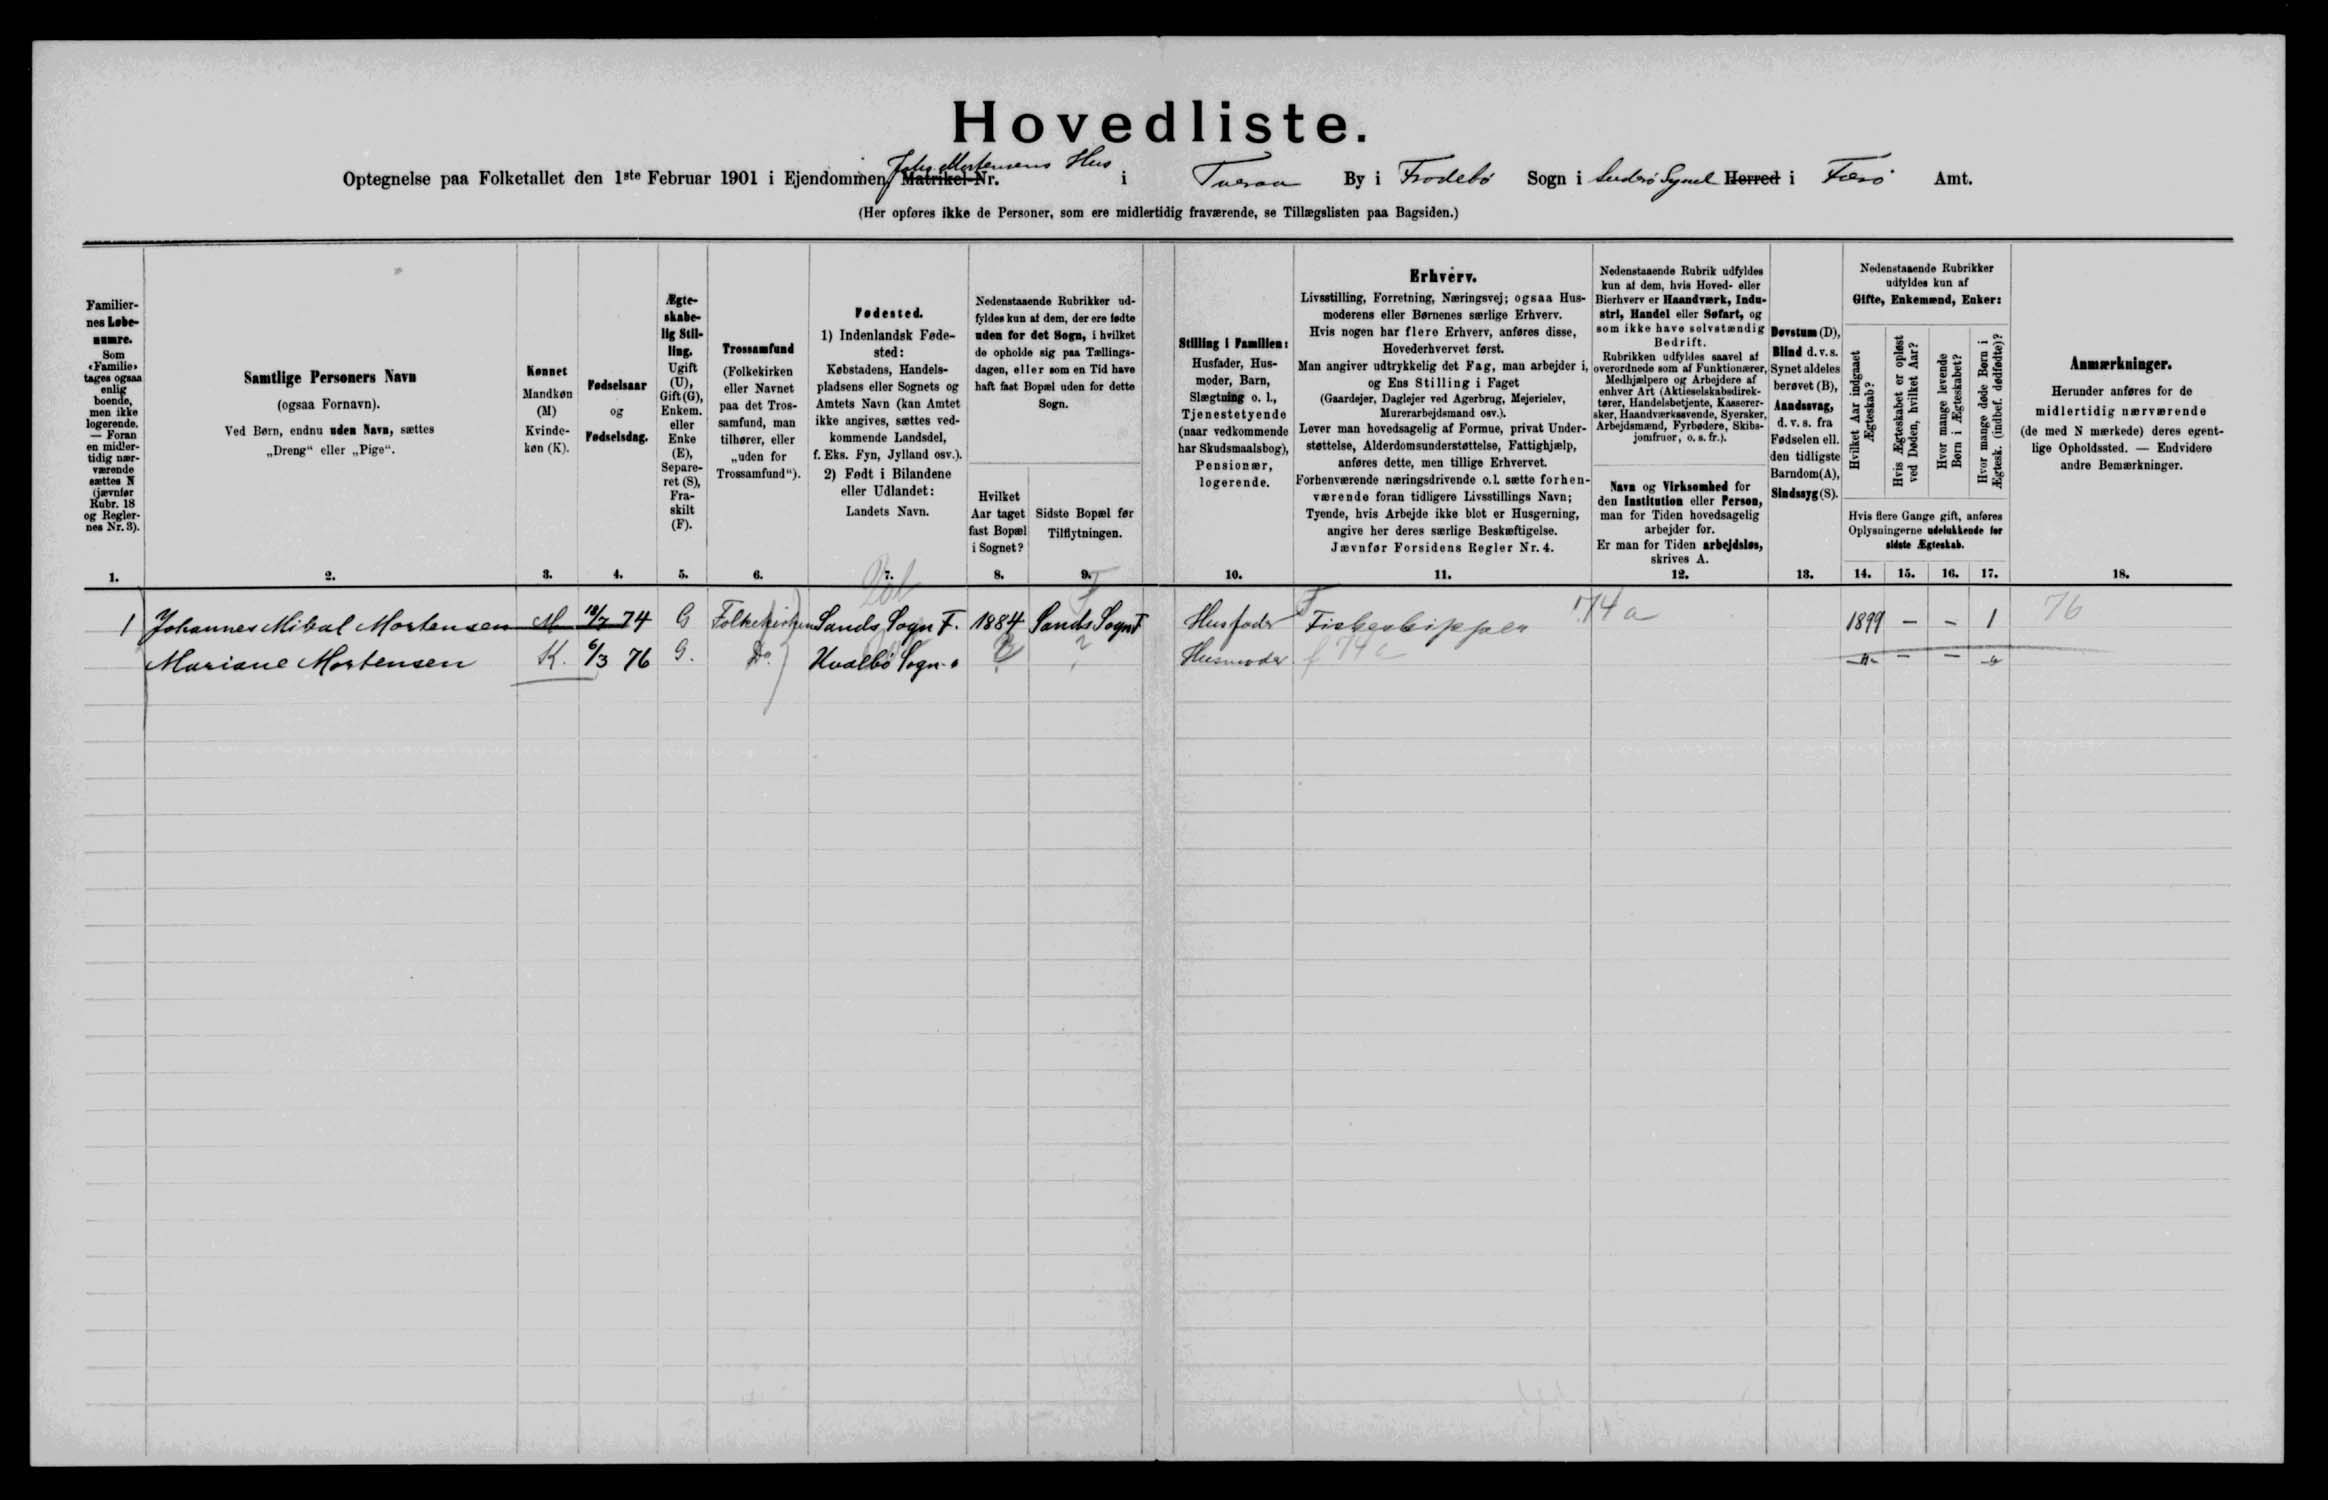 Hovedliste.
Optegnelse paa Folketallet den 1ste Februar 1901 i Ejendommen, Matrikel-Nr. Johs Mortensens Hus i Tveraa By i Frodebö Sogn i Suderö Syssel Herred i Færö Amt.
(Her opføres ikke de Personer, som ere midlertidig fraværende, se Tillægslisten paa Bagsiden.)
Familier-
nes Løbe-
numre.
Som
«Familie»
tages ogsaa
enlig
boende,
men ikke
logerende.
— Foran
en midler-
tidig nær-
værende
sættes N
(jævnfør
Rubr. 18
og Regler-
nes Nr. 3).
Samtlige Personers Navn
(ogsaa Fornavn).
Ved Børn, endnu uden Navn, sættes
„Dreng“ eller „Pige“.
Kønnet
Mandkøn
(M)
Kvinde-
køn (K).
Fødselsaar
og
Fødselsdag.
Ægte-
skabe-
lig Stil-
ling.
Ugift
(U),
Gift (G),
Enkem.
eller
Enke
(E),
Separe-
ret (S),
Fra-
skilt
(F).
Trossamfund
(Folkekirken
eller Navnet
paa det Tros-
samfund, man
tilhører, eller
„uden for
Trossamfund“).
Fødested.
1) Indenlandsk Føde-
sted:
Købstadens, Handels-
pladsens eller Sognets og
Amtets Navn (kan Amtet
ikke angives, sættes ved-
kommende Landsdel,
f. Eks. Fyn, Jylland osv.).
2) Født i Bilandene
eller Udlandet:
Landets Navn.
Nedenstaaende Rubrikker ud-
fyldes kun af dem, der ere fødte
uden for det Sogn, i hvilket
de opholde sig paa Tællings-
dagen, eller som en Tid have
haft fast Bopæl uden for dette
Sogn.
Hvilket
Aar taget
fast Bopæl
i Sognet?
Sidste Bopæl før
Tilflytningen.
Stilling i Familien:
Husfader, Hus-
moder, Barn,
Slægtning o. l.,
Tjenestetyende
(naar vedkommende
har Skudsmaalsbog),
Pensionær,
logerende.
Erhverv.
Livsstilling, Forretning, Næringsvej; ogsaa Hus-
moderens eller Børnenes særlige Erhverv.
Hvis nogen har flere Erhverv, anføres disse,
Hovederhvervet først.
Man angiver udtrykkelig det Fag, man arbejder i,
og Ens Stilling i Faget
(Gaardejer, Daglejer ved Agerbrug, Mejerielev,
Murerarbejdsmand osv.).
Lever man hovedsagelig af Formue, privat Under-
støttelse, Alderdomsunderstøttelse, Fattighjælp,
anføres dette, men tillige Erhvervet.
Forhenværende næringsdrivende o. l. sætte forhen-
værende foran tidligere Livsstillings Navn;
Tyende, hvis Arbejde ikke blot er Husgerning,
angive her deres særlige Beskæftigelse.
Jævnfør Forsidens Regler Nr. 4.
Nedenstaaende Rubrik udfyldes
kun af dem, hvis Hoved- eller
Bierhverv er Haandværk, Indu-
stri, Handel eller Søfart, og
som ikke have selvstændig
Bedrift.
Rubrikken udfyldes saavel af
overordnede som af Funktionærer,
Medhjælpere og Arbejdere af
enhver Art (Aktieselskabsdirek-
tører, Handelsbetjente, Kasserer-
sker, Haandværkssvende, Syersker,
Arbejdsmænd, Fyrbødere, Skibs-
jomfruer, o. s. fr.).
Navn og Virksomhed for
den Institution eller Person,
man for Tiden hovedsagelig
arbejder for.
Er man for Tiden arbejdsløs,
skrives A.
Døvstum (D),
Blind d. v. s.
Synet aldeles
berøvet (B),
Aandssvag,
d. v. s. fra
Fødselen ell.
den tidligste
Barndom (A),
Sindssyg (S).
Nedenstaaende Rubrikker
udfyldes kun af
Gifte, Enkemænd, Enker:
Hvilket Aar indgaaet
Ægteskab?
Hvis Ægteskabet er opløst
ved Døden, hvilket Aar?
Hvor mange levende
Børn i Ægteskabet?
Hvor mange døde Børn i
Ægtesk. (indbef. dødfødte)?
Hvis flere Gange gift, anføres
Oplysningerne udelukkende for
sidste Ægteskab.
Anmærkninger.
Herunder anføres for de
midlertidig nærværende
(de med N mærkede) deres egent-
lige Opholdssted. — Endvidere
andre Bemærkninger.
1. 2. 3. 4. 5. 6. 7. 8. 9. 10. 11. 12. 13. 14. 15. 16. 17. 18.
1 Johannes Mikal Mortensen M 18/7 74 G Folkekirken Sands Sogn F. 1884 Sands Sogn F Husfader Fiskeskipper 74 a 1899 – – 1 76
Mariane Mortensen K. 6/3 76 G. Do Hvalbö Sogn ? ? Husmoder f 74 a –"– – –